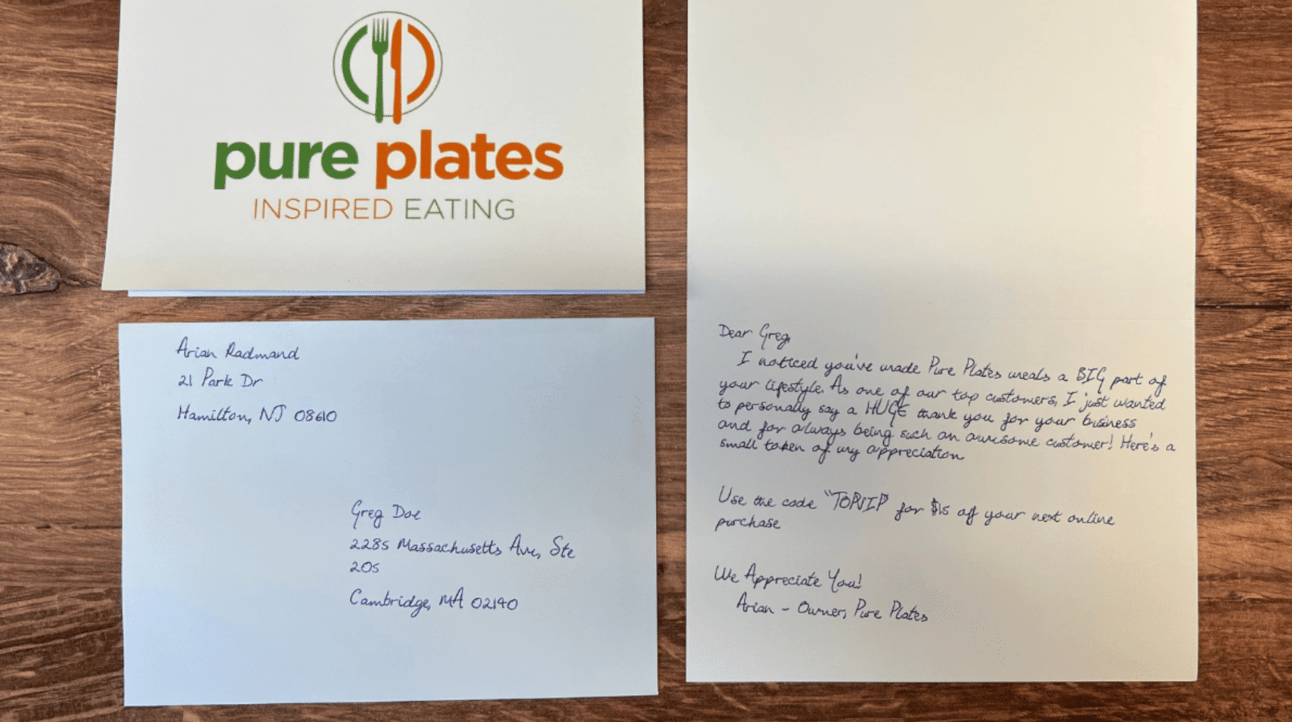 pure plates
INSPIRED EATING
Arian Radmand
21 Park Dr
Hamilton, NJ 08610
Greg Doe
2285 Massachusetts Ave, Ste
205
Cambridge, MA 02140
Dear Greg,
I noticed you've made Pure Plates meals a BIG part of
your lifestyle. As one of our top customers, I just wanted
to personally say a HUGE thank you for your business
and for always being such an awesome customer! Here's a
small token of my appreciation
Use the code "TOPVIP" for $15 off your next online
purchase
We Appreciate You!
Arian - Owner, Pure Plates